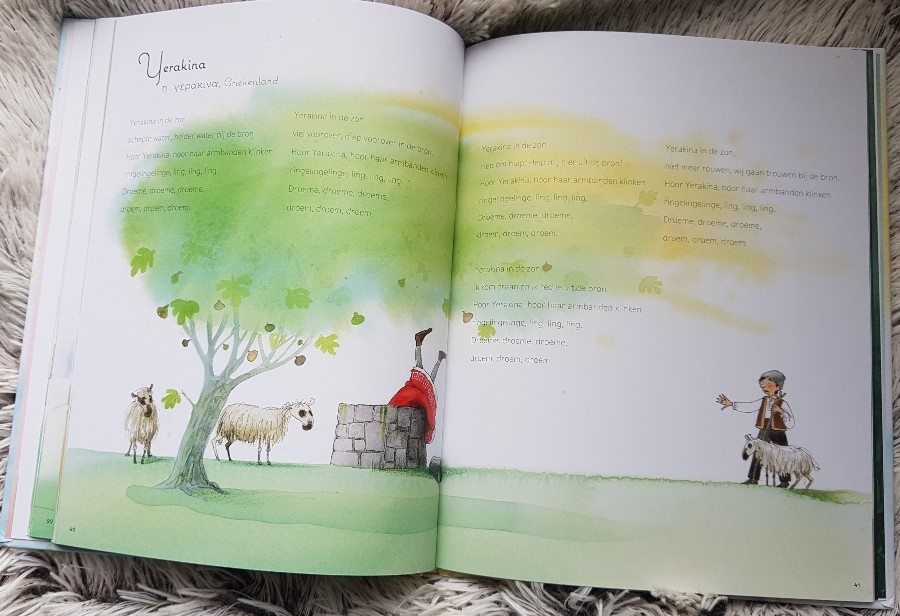 Yerakina
η γερακινα, Griekenland
Yerakina in de zon
schepte water, helder water bij de bron.
Hoor Yerakina, hoor haar armbanden klinken
ringelingelinge, ling, ling, ling.
Droeme, droeme, droeme,
droem, droem, droem.
Yerakina in de zon
viel voorover, diep voorover in de bron.
Hoor Yerakina, hoor haar armbanden klinken
ringelingelinge, ling, ling, ling.
Droeme, droeme, droeme,
droem, droem, droem.
Yerakina in de zon
riep om hulp: Help mij, hier uit de bron!
Hoor Yerakina, hoor haar armbanden klinken
ringelingelinge, ling, ling, ling.
Droeme, droeme, droeme,
droem, droem, droem.
Yerakina in de zon
ik kom eraan en ik red je uit de bron.
Hoor Yerakina, hoor haar armbanden klinken
ringelingelinge, ling, ling, ling.
Droeme, droeme, droeme,
droem, droem, droem.
Yerakina in de zon,
niet meer rouwen, wij gaan trouwen bij de bron.
Hoor Yerakina, hoor haar armbanden klinken
ringelingelinge, ling, ling, ling.
Droeme, droeme, droeme,
droem, droem, droem.
41